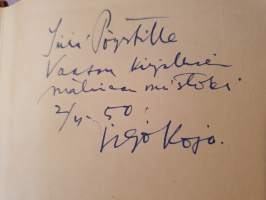 Jussi Pöystille
Vaasan kirjallisen
matinean muistoksi
2/4 50.
Viljo Kojo.